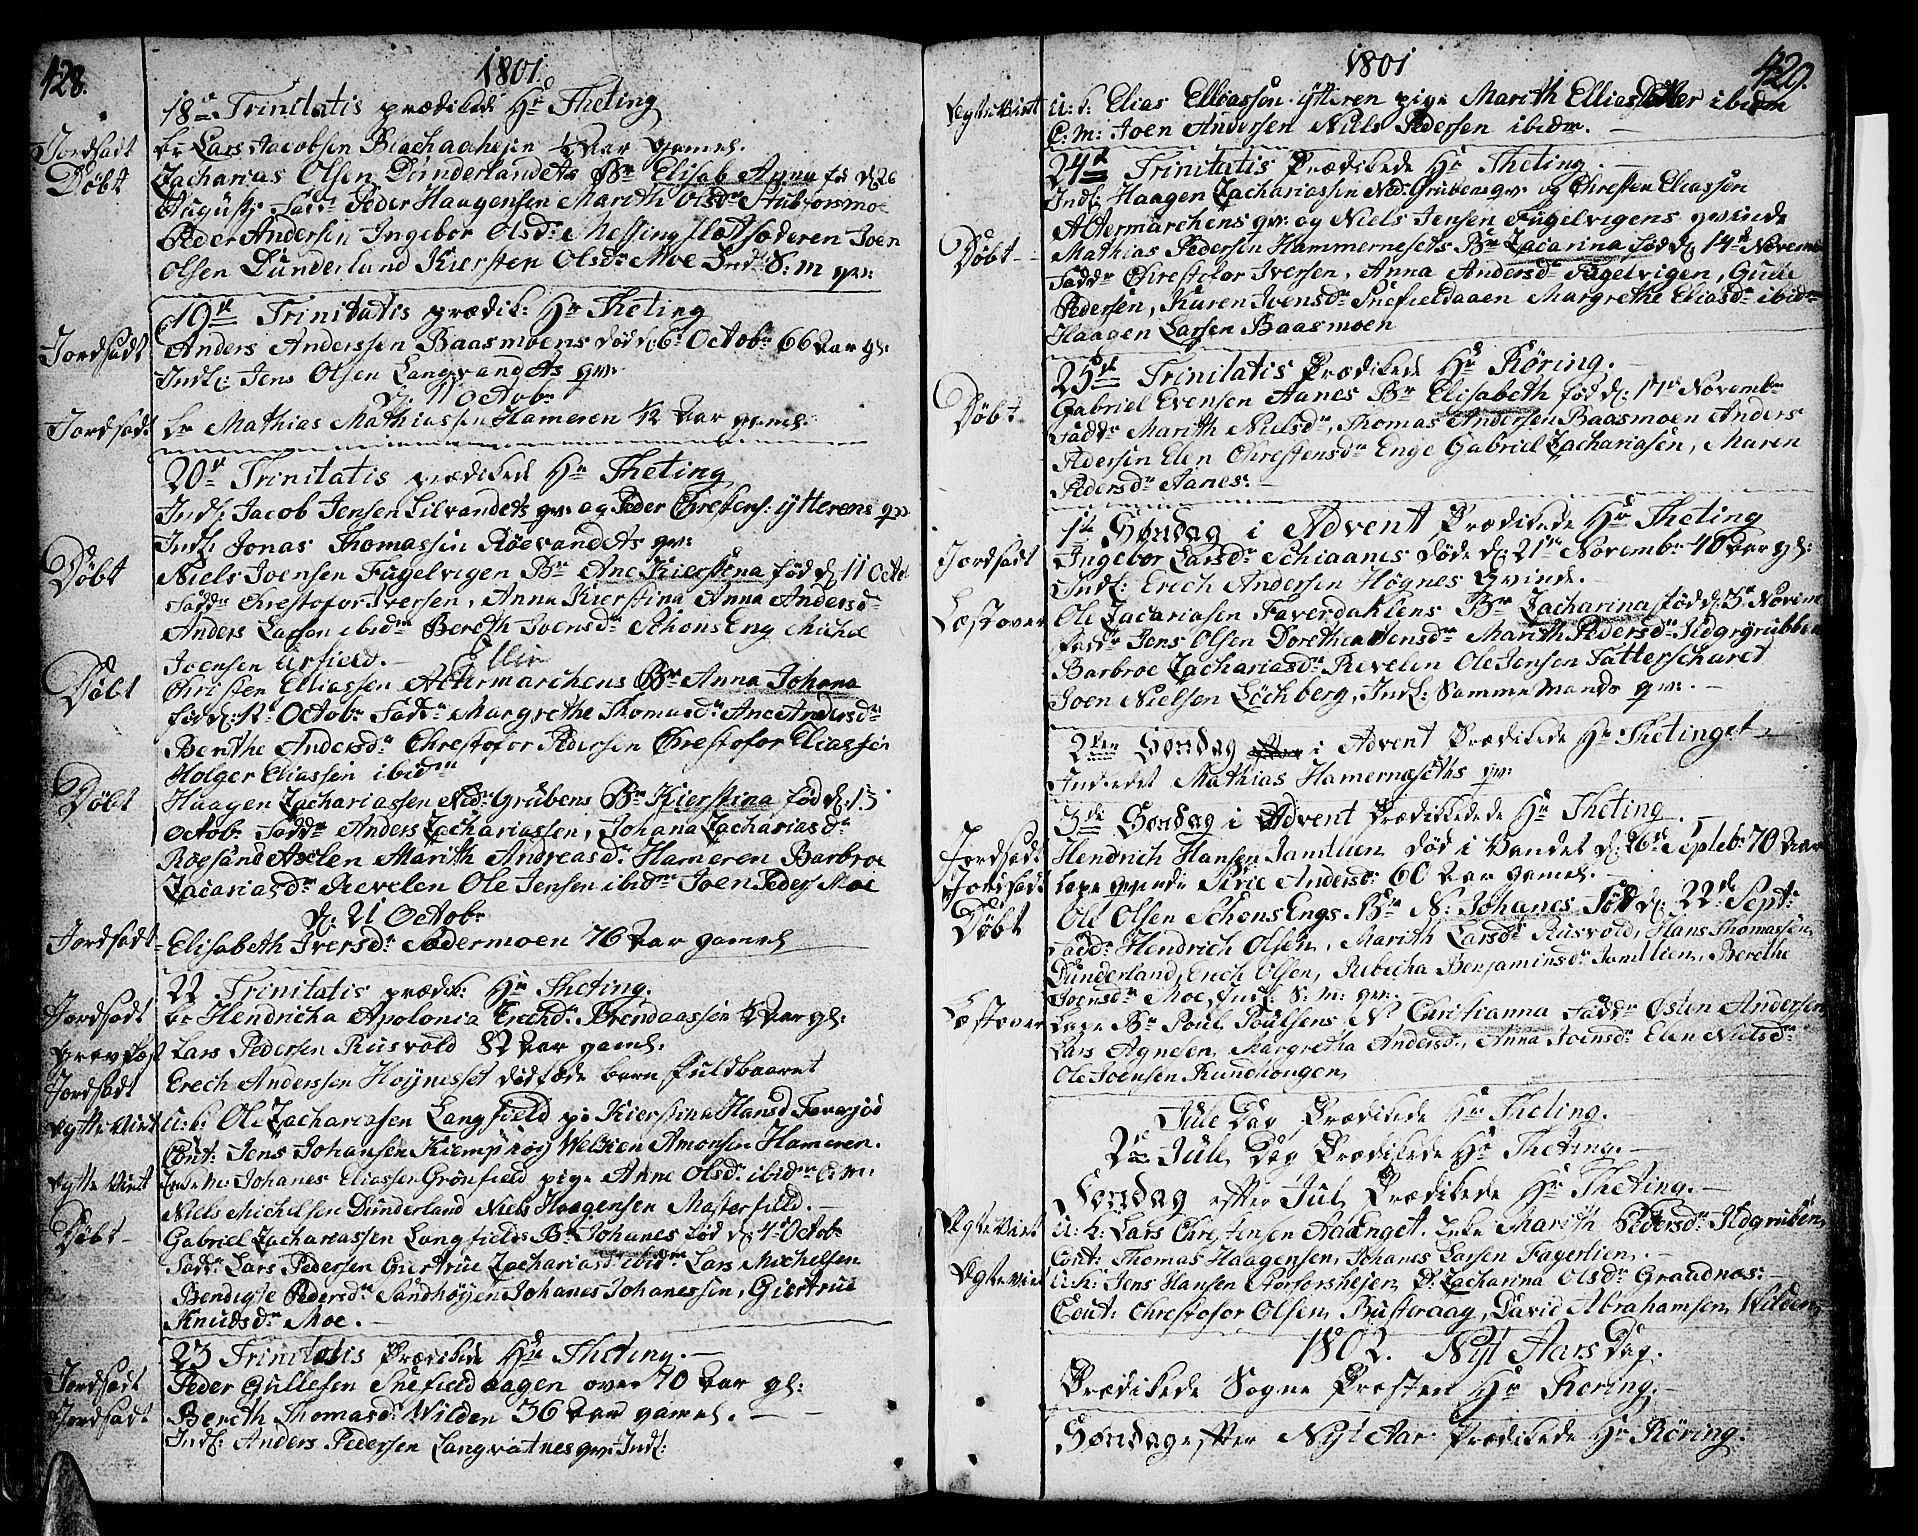 428.
1801.
18de Trinitatis prædikede Hr Theting
Jordsadt
br Lars Jacobsen ½ Aar gamel.
Døbt
Zacharias Olsen Dunderlandets Bn Elisab Anna fø d: 26
August; Fadd: Peder Haagensen Marith Olsdr Stubforsmoe
Peder Andersen Ingebor Olsdr Messing Joen
Olsen Dunderland Kiersten Olsdr Moe Indl: S: m qv:
19de Trinitatis prædik: Hr Theting
Jordsadt
Anders Anderssen Baasmoens død d: 6 Octobr 66 Aar gl:
Indl: Jens Olsen Langvandets qv:
d: 11 Octobr
Jordsadt
br Mathias Mathiassen Hameren 1/12 Aar gamel.
20de Trinitatis prædikede Hr Theting
Indl: Jacob Jensen Lilvandets qv: og Peder Chrestens: ytterens qv:
Indl: Jonas Thomassen Røevandets qv:
Døbt
Niels Joensen Fugelvigen Bn Ane Kierstina fød d: 11 Octo
Fadd: Chrestofor Iversen, Anna Kierstina Anna Andersd:
Anders Larsen ibidm Bereth Joensdr Schons Eng Michel
Joensen Urfield. Ellin
Døbt
Christen Elliassen Altermarchens Bn Anna Johana
fød d: 12 Octobr Fadd: Margrethe Thomasdr Ane Andersdr
Berithe Andersdr Chrestofor Pedersen Chrestofor Eliassen
Holger Eliassen ibidm
Døbt
Haagen Zachariassen Nid: Grubens Bn Kierstina fød d: 15
Octobr Fadd: Anders Zachariassen, Johana Zachariasdr
Røgsand Axelen Marith Andreasdr Hameren Barbroe
Zacariasdr Revelen Ole Jensen ibidm Joen Peders Moe
d: 21 Octobr
Jordsadt
Elisabeth Iversdr Sødermoen 76 Aar gamel
22 Trinitatis prædik: Hr Theting.
Jordsadt
br Hendricha Apolonia Erichdr ½ Aar gl:
Grev fæst
Lars Pedersen Rusvold 82 Aar gamel:
Jordsadt
Erech Anderssen Høynesset dødføde barn fuldbaaret
Egte Viet
U: k: Ole Zachariasen Langfield pi: Kierstina Hansd
Cout: Jens Johansen Kiempehøy Welken Amonsen Hameren.
Egte Viet
Enke M: Johanes Eliassen Grønfield pige Anne Olsdr ibidm C: M:
Niels Michelsen Dunderland Niels Haagensen Messerfield.
Døbt
Gabriel Zachariassen Langfields Bn Johanes fød d: 4de Octobr
Fadd: Lars Pedersen Giertrue Zachariasd: ibidm Lars Michelsen
Bendigte Pedersdr Sandhøyen Johanes Johanessen, Giertrue
Knudsdr Moe.
23 Trinitatis Prædikede Hr Theting.
Jordsadt
Peder Gullesen Snefieldaagen over 70 Aar gl:
Jordsadt
Bereth Thomasdr Wilden 36 Aar gamel.
Indl: Anders Pedersen Langvatnes qv: Indl:
1801
429.
Egte Viet
U: k: Elias Elliassøn ytteren pige Marith Elliasdatter ibidm
C: M: Joen Andersen Niels Pedersen ibidm.
24de Trinitatis Prædikede Hr Theting.
Indl: Haagen Zachariassen Nid: Grubens qv: og Chresten Eliassen
Altermarchens qv: og Niels Jensen Fugelvigens qvinde
Døbt
Mathias Pedersen Hammernesets Bn Zacarina fød d: 14de Novem
Fadd: Chrestofor Iversen, Anna Andersdr Fugelvigen, Gude
Pedersen, Karen Jvensdr Snefieldaaen Margrethe Eliasdr ibidm
Haagen Larsen Baasmoen
25de Trinitatis Prædikede Hr Røring.
Døbt
Gabriel Evensen Aanes Bn Elisabeth fød d: 17de Novembr
Fadd: Marith Nielsdr, Thomas Andersen Baasmoen Anders
Pedersen Elen Chrestensdr Enge Gabriel Zachariasen, Maren
Pedersdr Aanes:
1te Søndag i Advent Prædikede Hr Theting
Jordsadt
Ingebor Larsdr Schiaanes døde d: 21de Novembr 48 Aar gl:
Indl: Erech Andersen Høgnes Qvinde.
Læst over
Ole Zacariasen Faverdahlens Bn Zacharina fød d: 3de Novem
Fadd: Jens Olsen Dorethea Jvensdr Marith Pedersdr Ildgrubben
Barbroe Zachariasdr Revelen Ole Jensen Tatterscharet
Joen Nielsen Løchberg, Indl: Samme Mands qv:
2den Søndag i Advent Prædikede Hr Thetinget
Indledet Mathias Hamernæseths qv:
3de Søndag i Advent Prædikedede Hr Theting.
Jordsadt
Hendrich Hansen Jamtlien død i Vandet d: 26de Septebr 70 Aar
Jordsadt
Sirie Andersdr 60 Aar gamel.
Døbt
Ole Olsen Schons Engs Bn N: Johanes fød d: 22de Sept:
Fadd: Hendrich Olsen, Marith Larsdr Rusvold, Hans Thomassen
Dunderland, Erich Olsen, Rebicha Benjaminsdr Jamtlien, Berethe
Joensdr Moe, Indl: S: m: qv:
Læst over
Bn Poul Poulsens N Christianna Fadd: Østen Andersen
Lars Agnesen, Margretha Andersdr, Anna Joensdr Elen Nielsdr
Ole Joensen Rundhougen
Jule Dag Prædikede Hr Theting.
2den Jule Dag Prædikede Hr Theting.
Søndag efter Jul Prædikede Hr Theting.
Egte Viet
U: k: Lars Chrestensen Aaenget. Enke Marith Pedersdr Ildgruben
Cout: Thomas Haagensen, Johanes Larsen Fagerlien.
Egte Viet
U: k: Jens Hansen Storforshejen P: Zacharina Olsdr Graadnæs:
Cout: Chrestofor Olsen, Bustraag, David Abrahamsen Wilden
1802. Nyt Aars Dag.
Prædikede Sogne Præsten Hr Røring.
Søndag efter Nyt Aar Prædikede Hr Røring.